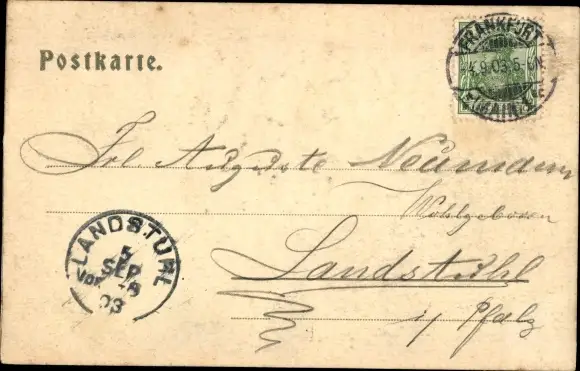 Postkarte.
FRANKFURT
4.9.03.5-6N.
(MAIN) 1
Frl Auguste Neumann
Wohlgeboren
Landstuhl
i/ Pfalz
LANDSTUHL
5
SEP
Vor.
03